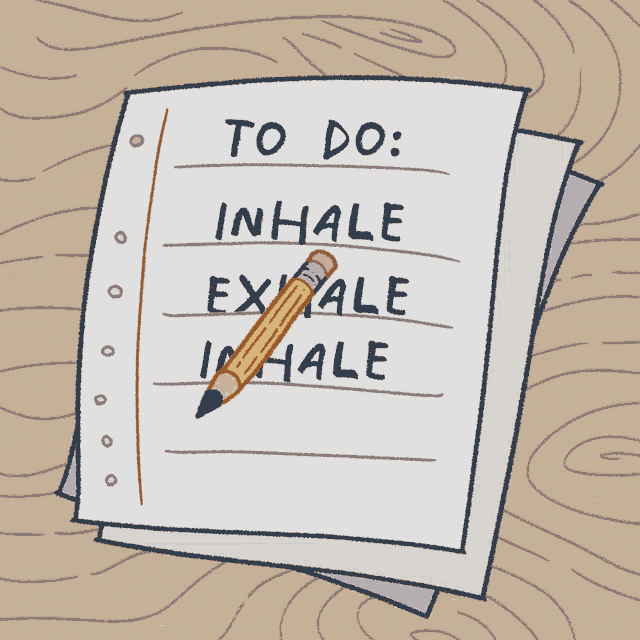 TO DO:
INHALE
EXHALE
INHALE